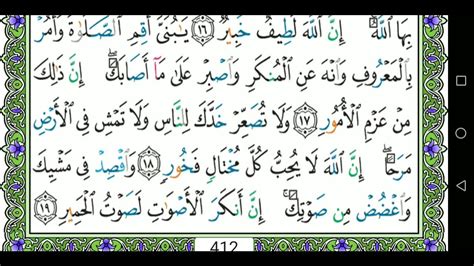 بِهَا ٱللَّهُۚ إِنَّ ٱللَّهَ لَطِيفٌ خَبِيرٌ ١٦ يَٰبُنَىَّ أَقِمِ ٱلصَّلَوٰةَ وَأْمُرْ
بِٱلْمَعْرُوفِ وَٱنْهَ عَنِ ٱلْمُنكَرِ وَٱصْبِرْ عَلَىٰ مَآ أَصَابَكَۖ إِنَّ ذَٰلِكَ
مِنْ عَزْمِ ٱلْأُمُورِ ١٧ وَلَا تُصَعِّرْ خَدَّكَ لِلنَّاسِ وَلَا تَمْشِ فِى ٱلْأَرْضِ
مَرَحًاۖ إِنَّ ٱللَّهَ لَا يُحِبُّ كُلَّ مُخْتَالٍ فَخُورٍ ١٨ وَٱقْصِدْ فِى مَشْيِكَ
وَٱغْضُضْ مِن صَوْتِكَۚ إِنَّ أَنكَرَ ٱلْأَصْوَٰتِ لَصَوْتُ ٱلْحَمِيرِ ١٩
412